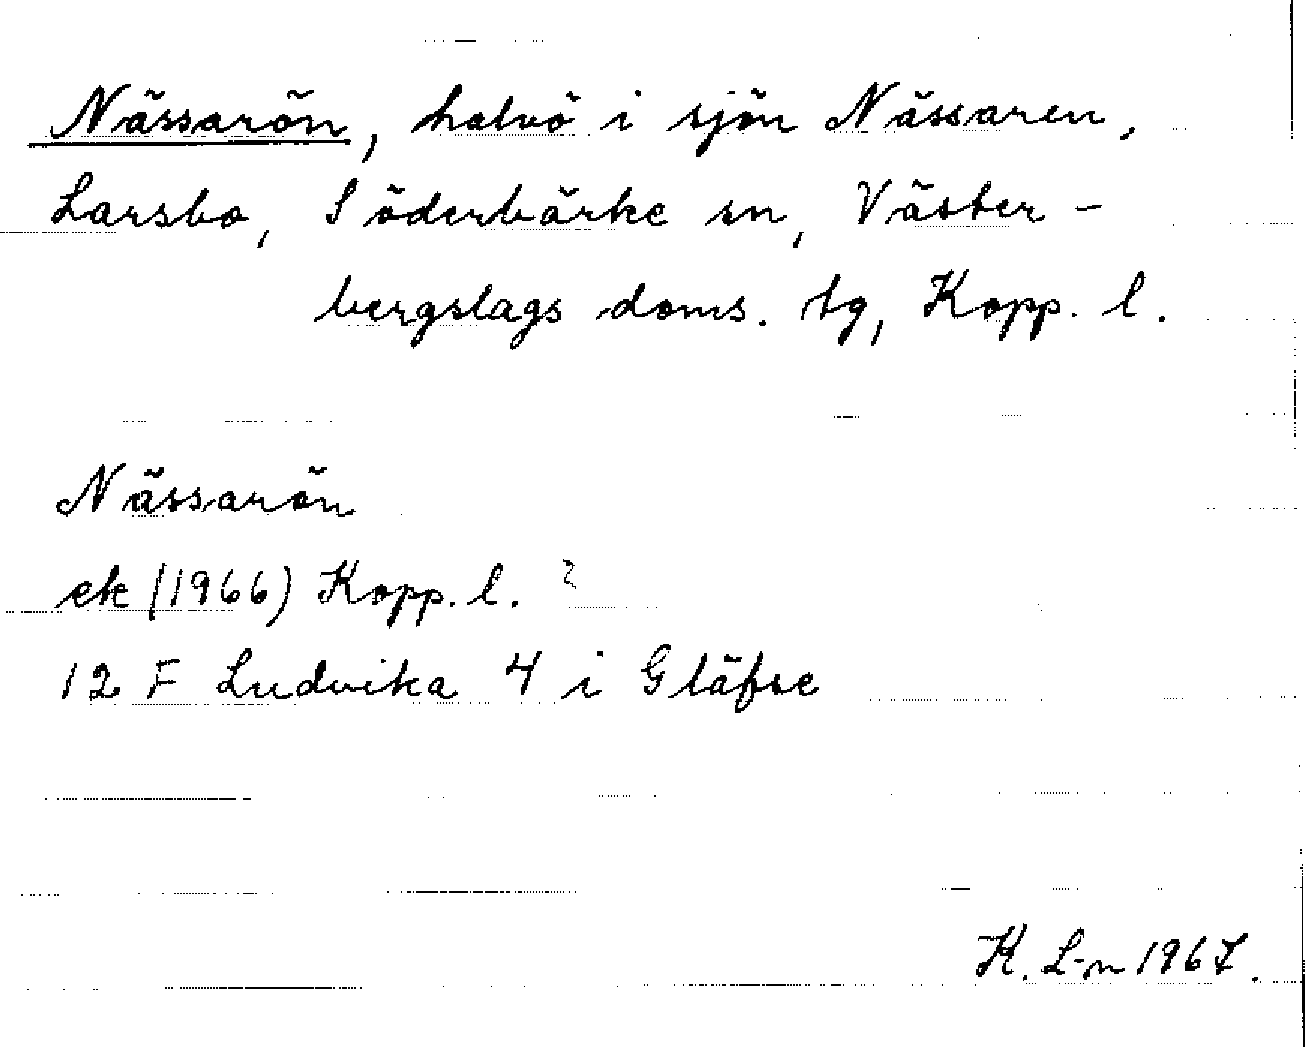 Nässarön, halvö i sjön Nässaren,
Larsbo, Söderbärke sn, Väster-
bergslags doms. tg, Kopp. l.
Nässarön
ek (1966) Kopp. l.
12 F Ludvika 4 i Gläfse
K. L-n 1967.